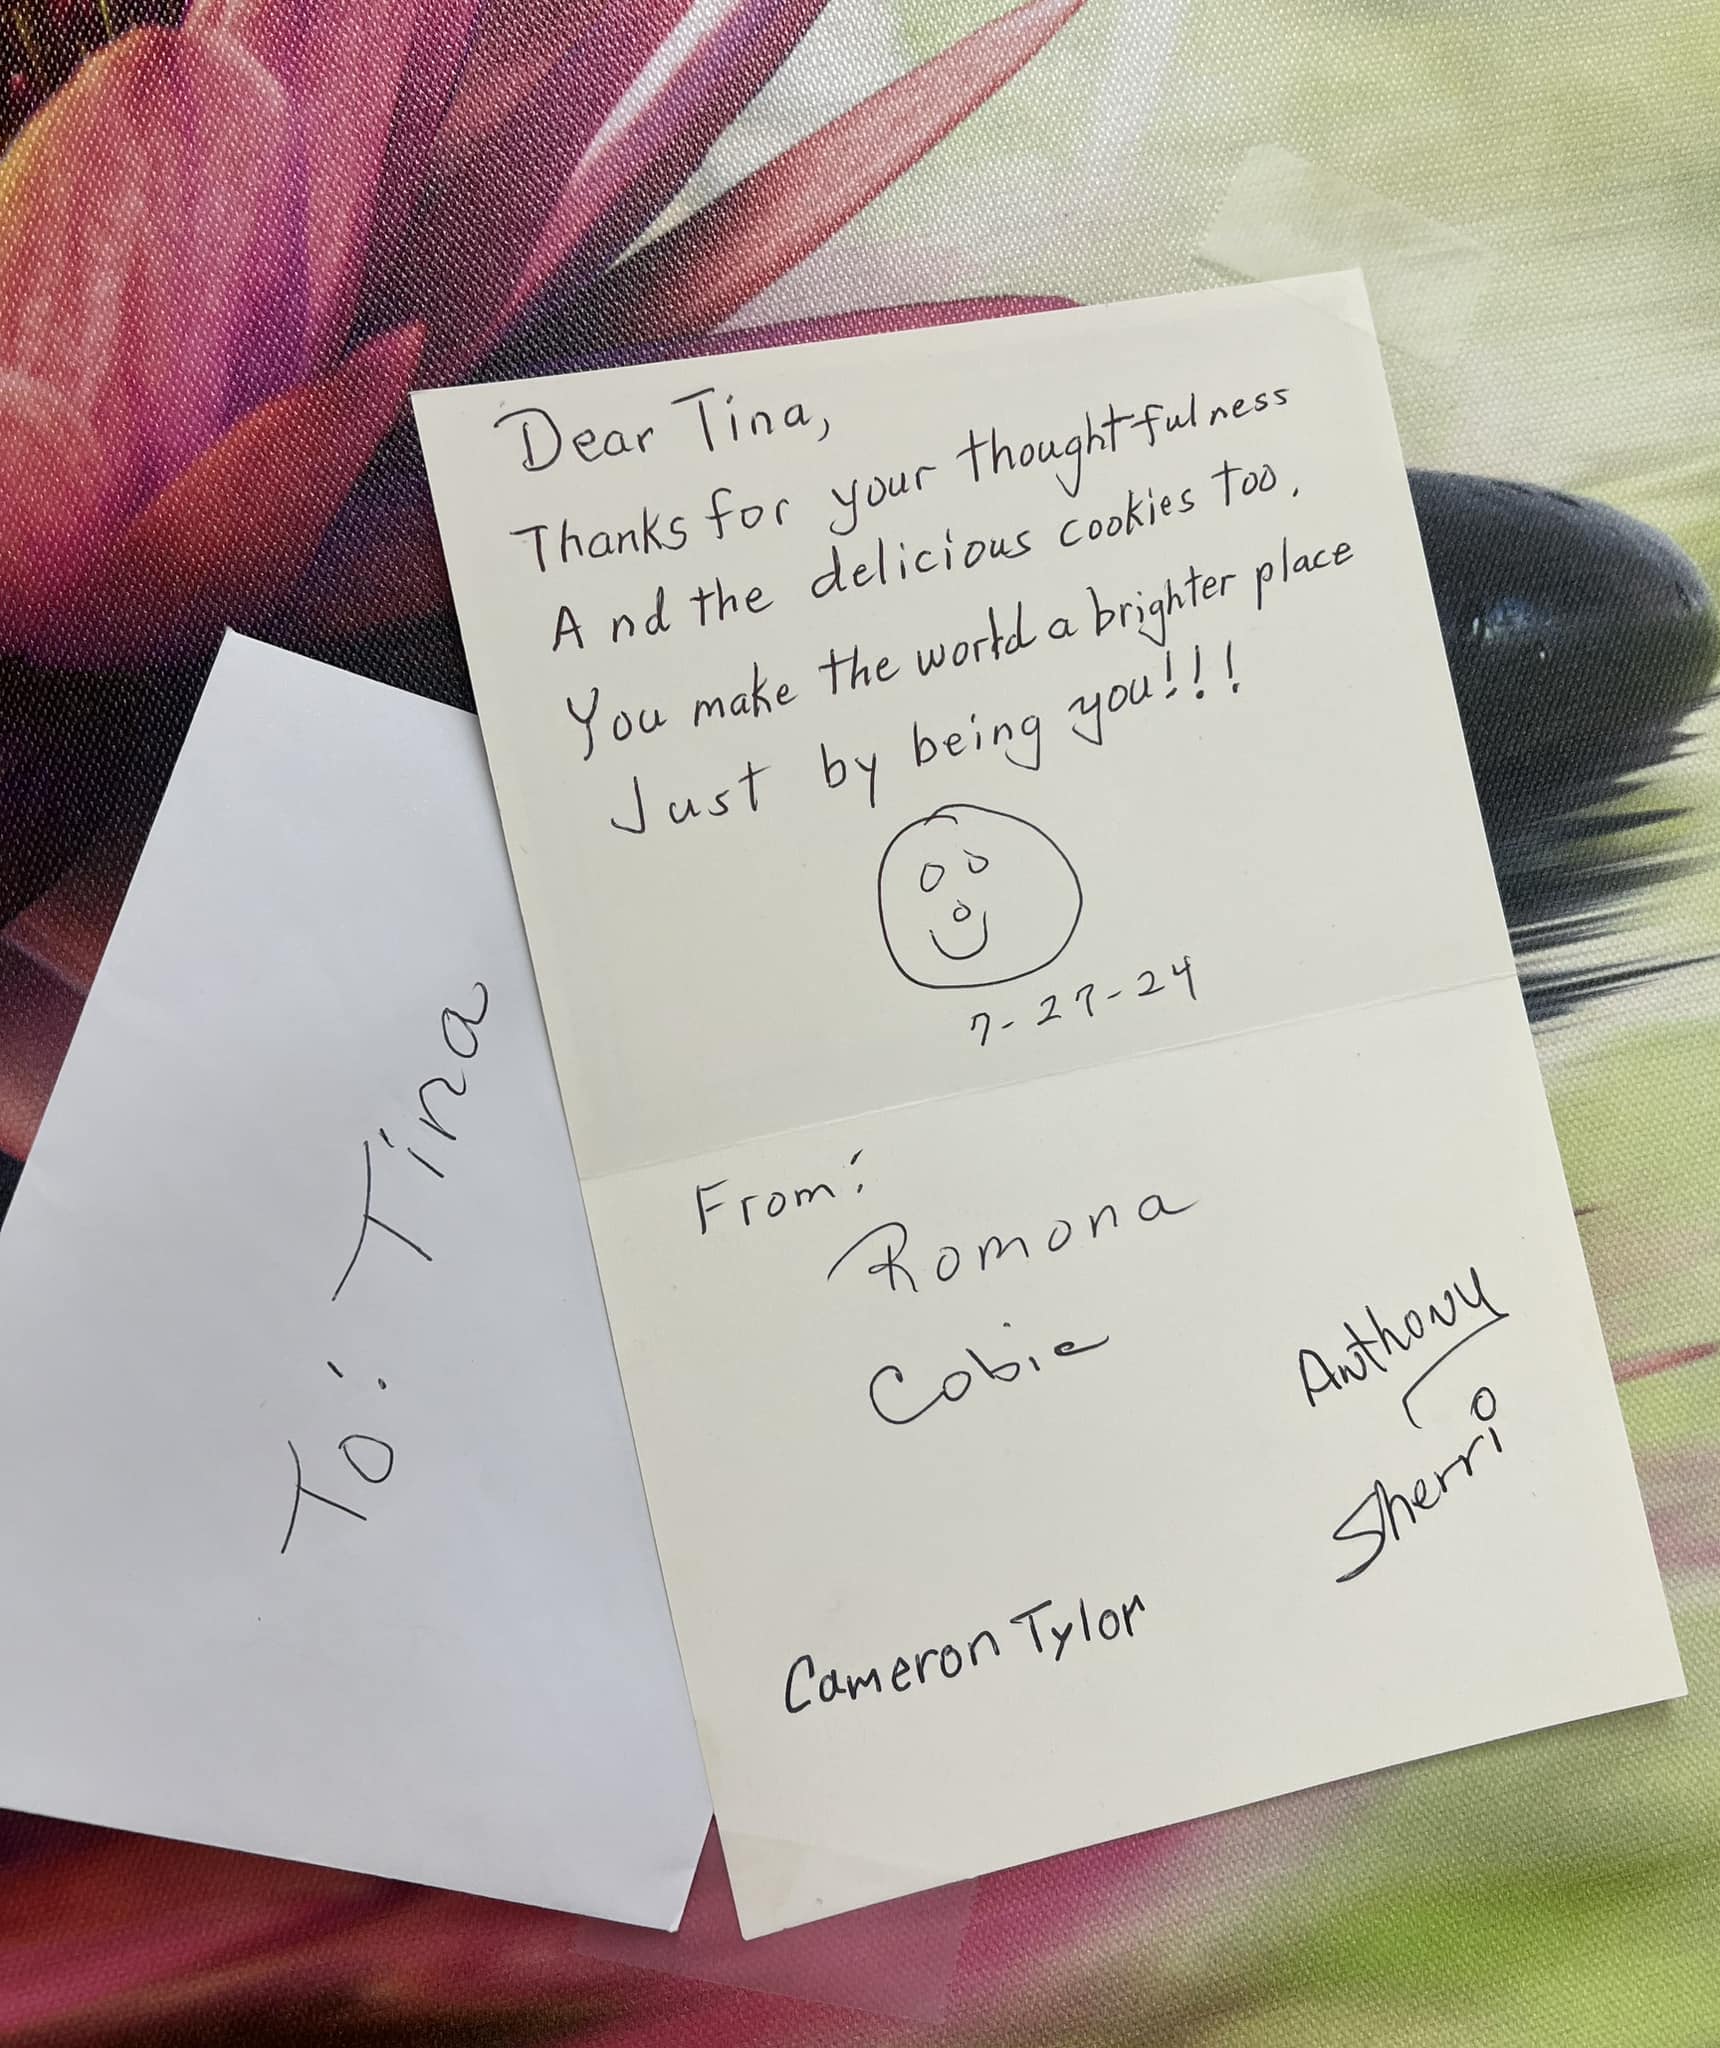 Dear Tina,
Thanks for your thoughtfulness
And the delicious cookies too.
You make the world a brighter place
Just by being you!!!
7-27-24
From:
Romona
Cobie
Anthony
Sherri
Cameron Tylor
To: Tina